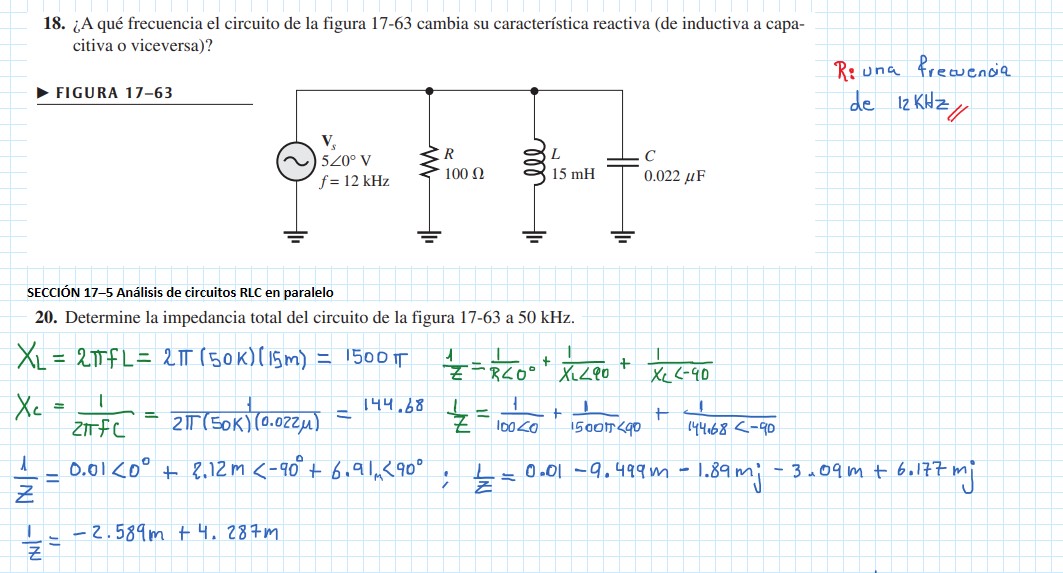 18. ¿A qué frecuencia el circuito de la figura 17-63 cambia su característica reactiva (de inductiva a capa-
citiva o viceversa)?
R: una frecuencia
de 12KHz
▶ FIGURA 17–63
V_s
5∠0° V
f = 12 kHz
R
100 Ω
L
15 mH
C
0.022 μF
SECCIÓN 17–5 Análisis de circuitos RLC en paralelo
20. Determine la impedancia total del circuito de la figura 17-63 a 50 kHz.
XL = 2πfL = 2π(50K)(15m) = 1500π   1/Z = 1/R<0° + 1/XL<90 + 1/Xc<-90
Xc = 1/2πfC = 1/2π(50K)(0.022μ) = 144.68   1/Z = 1/100<0 + 1/1500π<90 + 1/144.68<-90
1/Z = 0.01<0° + 2.12m<-90° + 6.91m<90° ; 1/Z = 0.01 -9.499m - 1.89mj - 3.09m + 6.177mj
1/Z = -2.589m + 4.287m